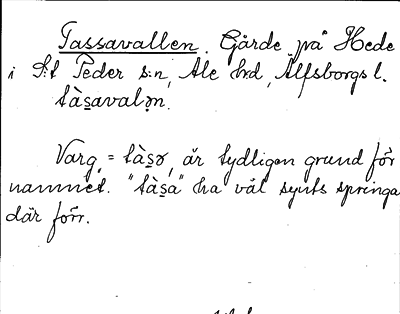 Tassavallen. Gärde på Hede
i S:t Peder s:n, Ale hrd, Älfsborgs l.
tàs̱avalən.
Varg, = tàs̱ə, är tydligen grund för
namnet. "tàs̱a" ha väl synts springa
där förr.